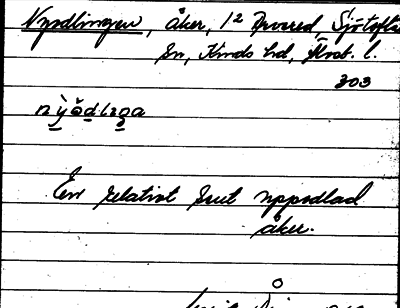 Nyodlingen, åker, 1² Öxvared, Sjötofta
Sn, Kinds hd, Älvsb. l.
303
nỳo̊dlɩŋa
En relativt sent uppodlad
åker.